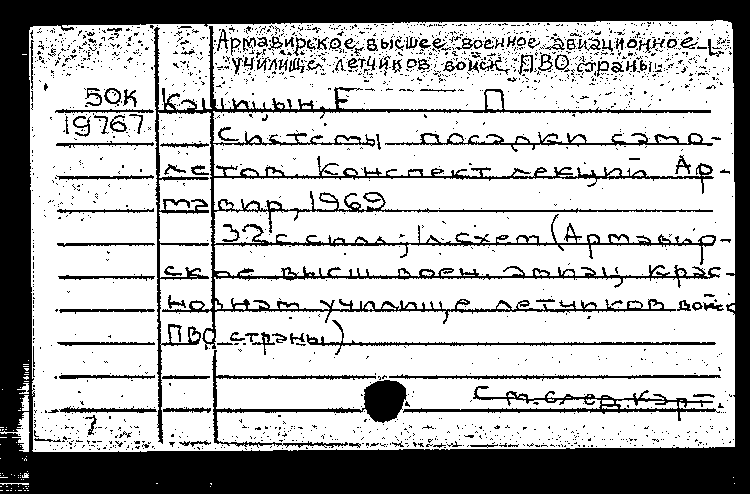 Армавирское высшее военное авиационное
училище летчиков войск ПВО страны.
50К Кашицын, Е П
19767 Системы посадки само-
летов. Конспект лекций. Ар-
мавир, 1969
32 с. с илл.; 1 л. схем (Армавир-
ское высш. воен. авиац. крас-
нознам. училище летчиков войск
ПВО страны).
См. след. карт.
7